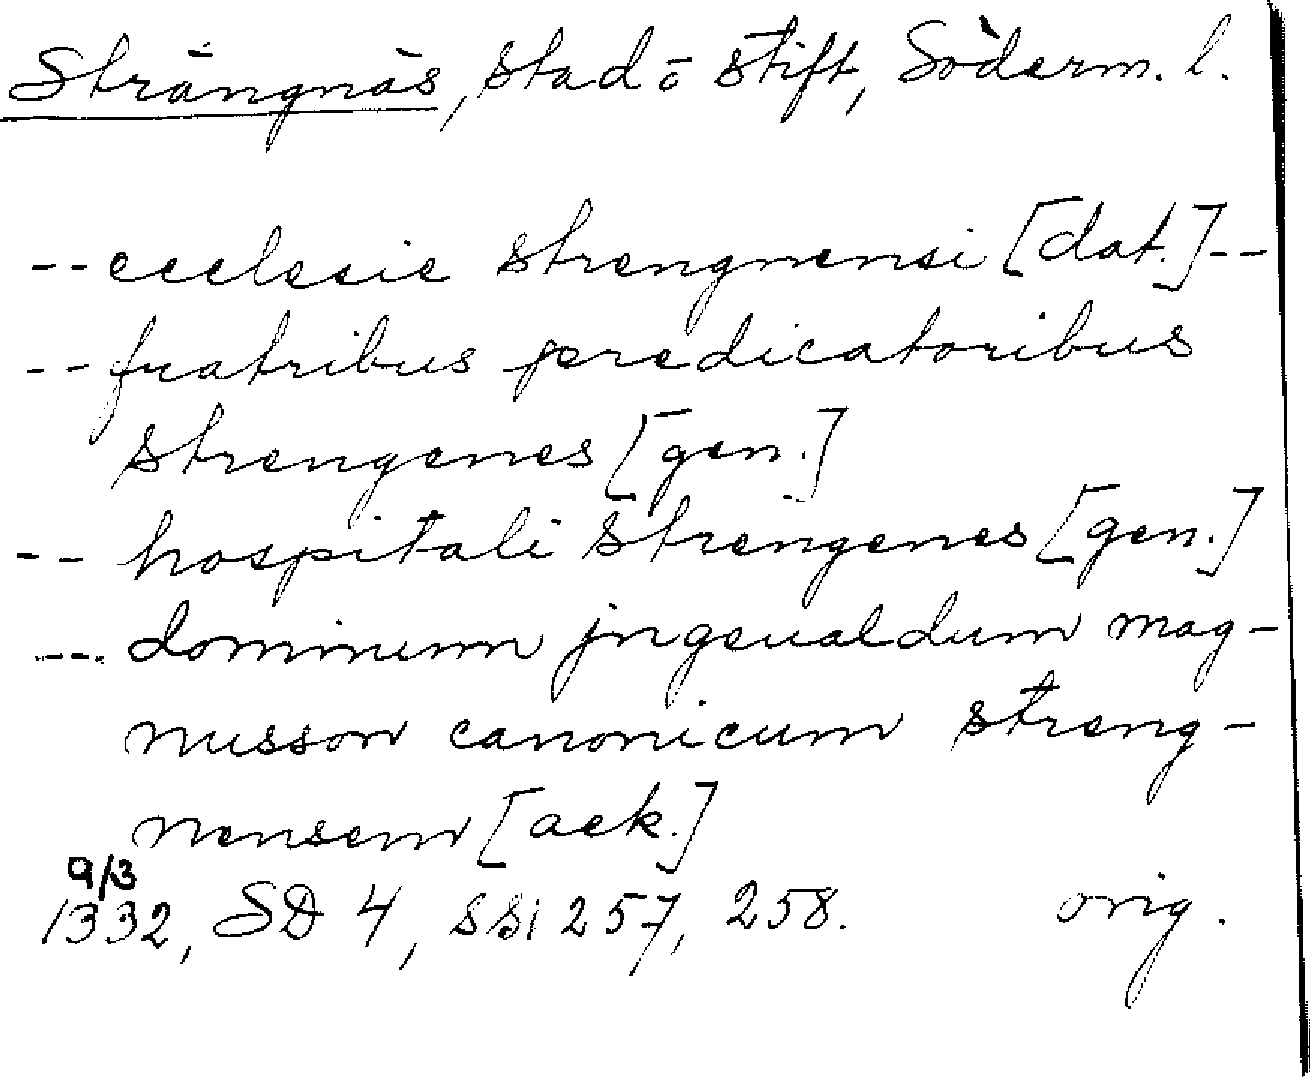 Strängnäs, stad o stift, Söderm. l.
-- ecclesie strengnensi [dat.] --
-- fratribus predicatoribus
strengenes [gen.]
-- hospitali strengenes [gen.]
--- dominum jngeualdum mag-
nusson canonicum streng-
nensem [ack.]
9/3
1332, SD 4, ss 257, 258. orig.